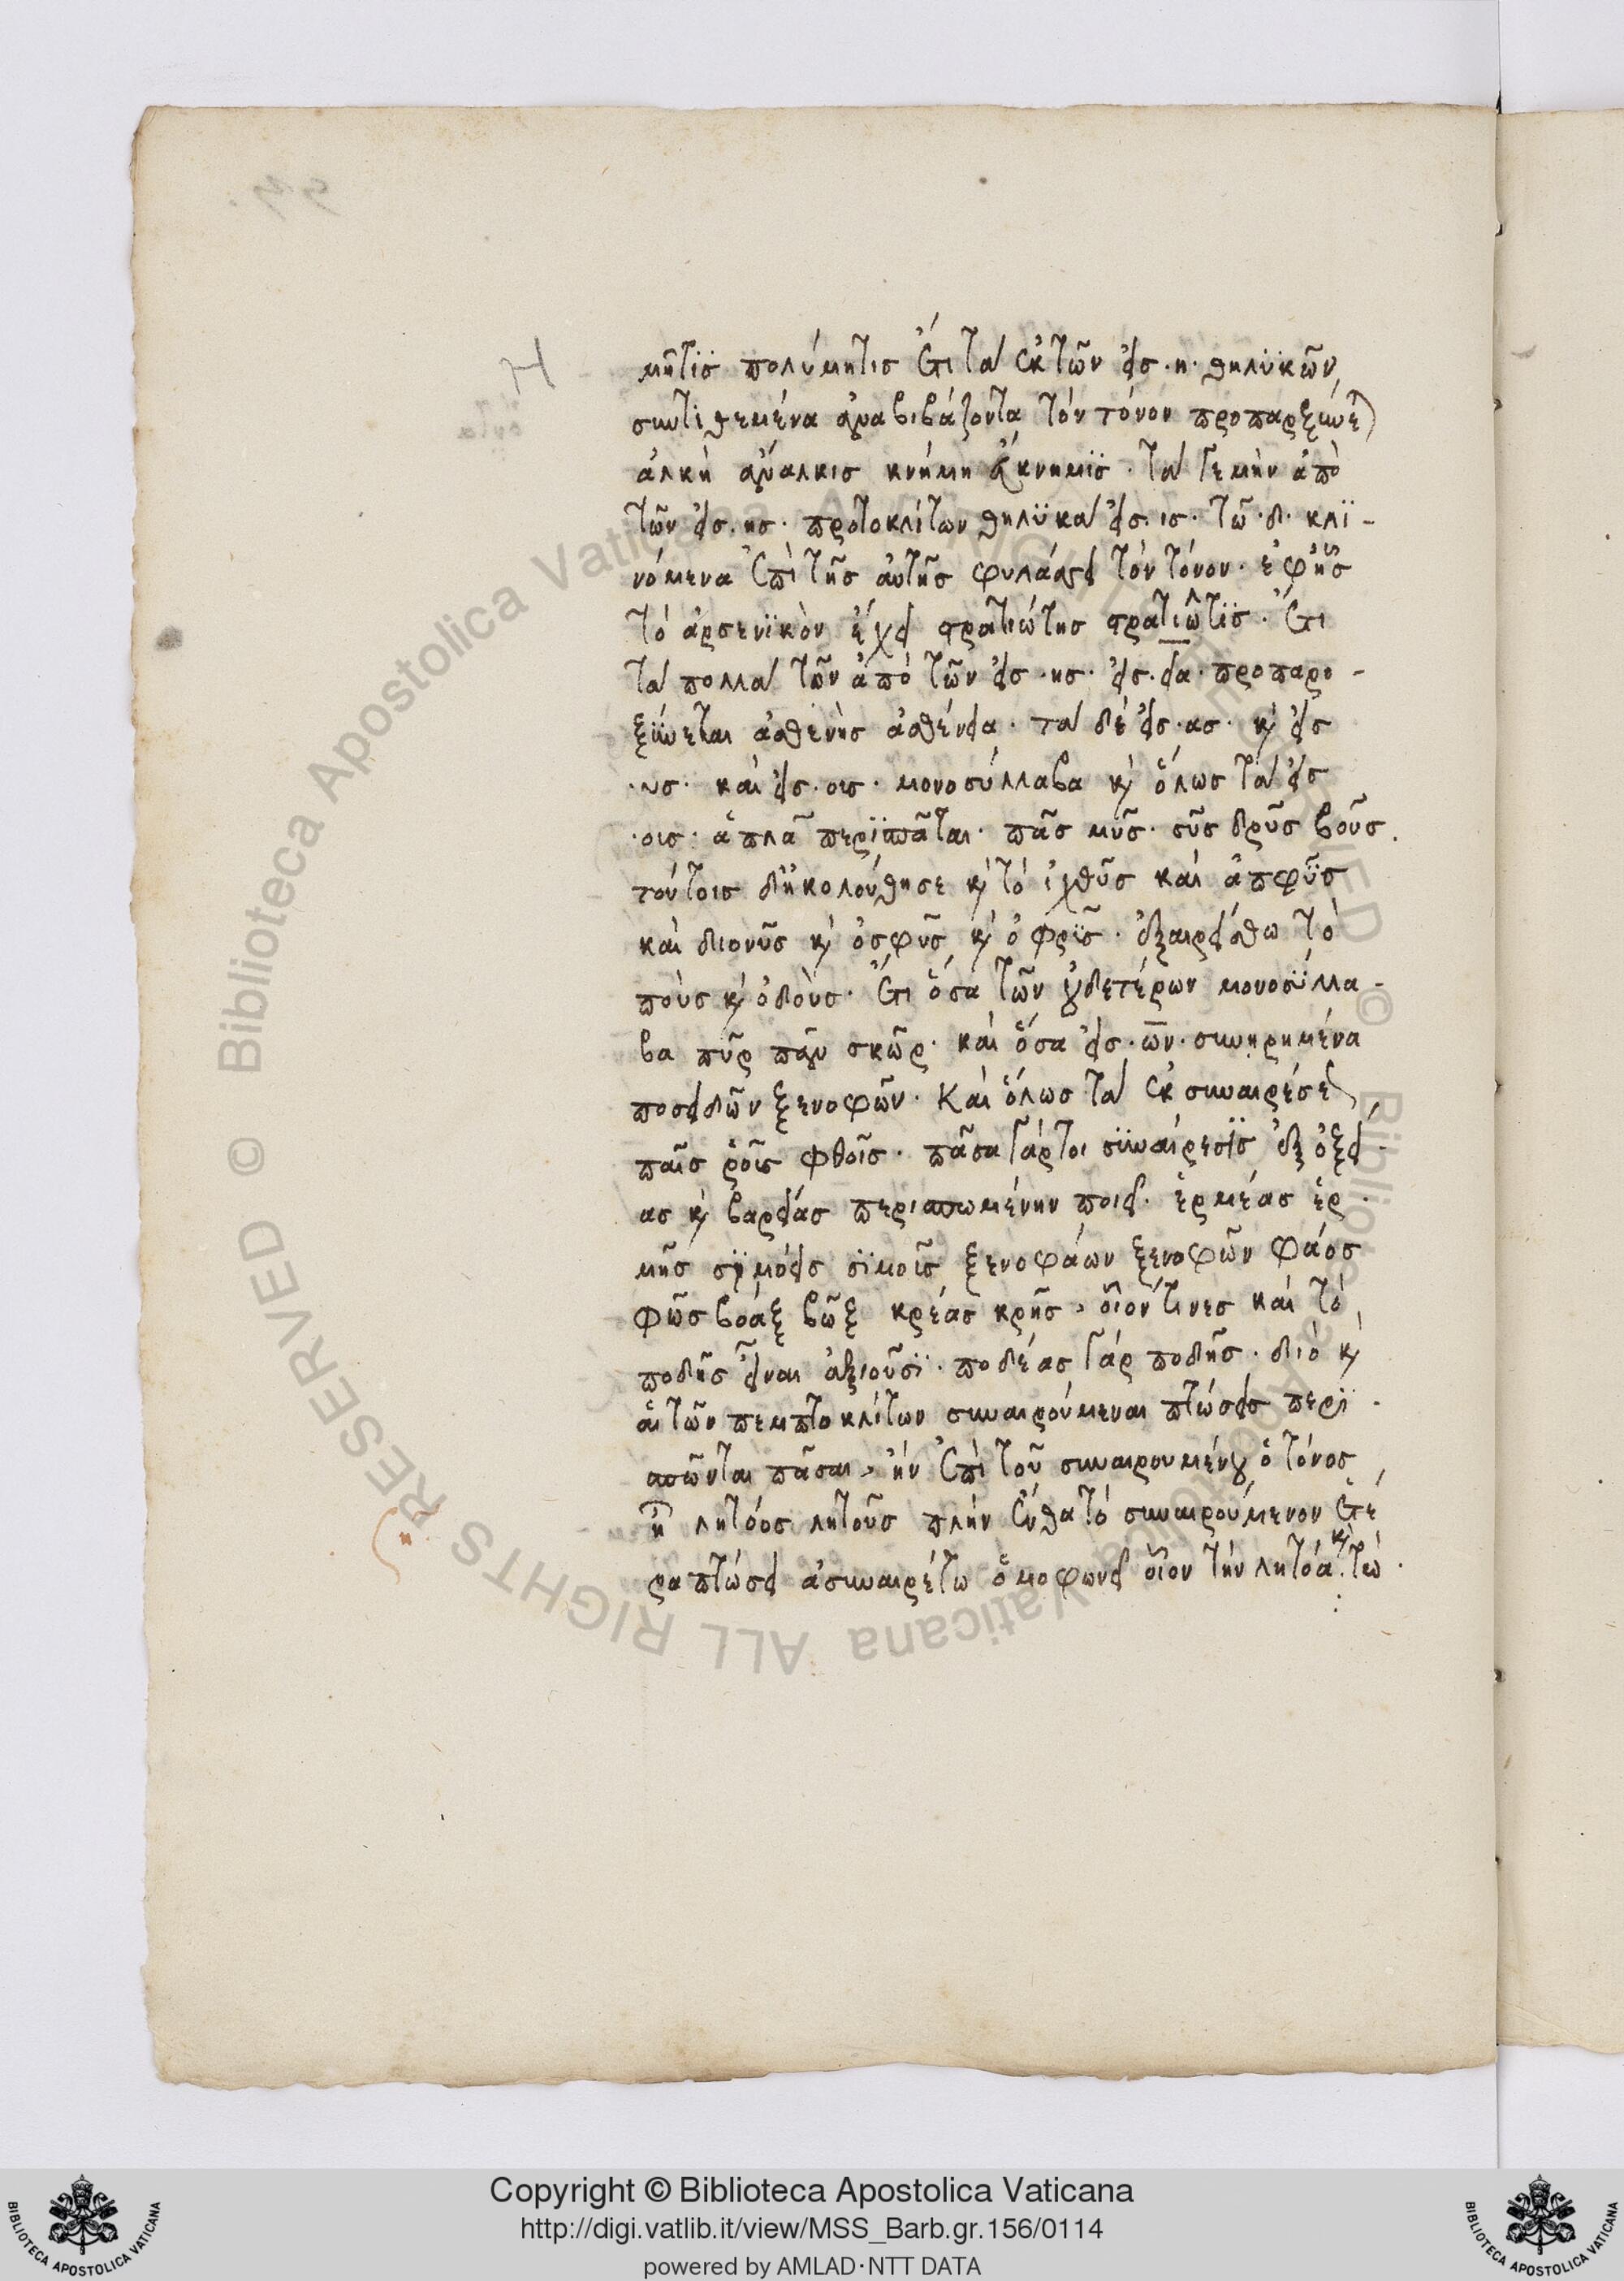 μῆτϊς πολύμητις ἔτι τὰ ἐκ τῶν εἰς ·η· θηλϋκῶν
συντιθεμένα ἀναβιβάζοντα τόν τόνον προπαρξύνε
ἀλκὴ ἄναλκις κνήμη εὔκνημϊς · τὰ γεμὴν ἀπὸ
τῶν εἰς ·ης· προτοκλίτων θηλϋκὰ εἰς ·ις· τῶ ·δ· κλϊ-
νόμενα ἐπὶ τῆς αὐτῆς φυλάσσει τόν τόνον · ἐφ' ἧς
τό ἀρσενϊκὸν ἔχει στρατιώτης στρατιῶτϊς · ἔτι
τὰ πολλὰ τῶν ἀπό τῶν εἰς ·ης· εἰς ·εια· προπαρο-
ξϋνεται ἀσθενὴς ἀσθένεια · τὰ δέ εἰς ·ας· κὶ εἰς
·υς· καὶ εἰς ·οις· μονοσύλλαβα κὶ ὅλως τὰ εἰς
·οις· ἁπλᾶ περϊσπᾶται · πᾶς μῦς · σῦς δρῦς βοῦς ·
τούτοις δἠκολούθησε κὶ τό ἰχθῦς καὶ ἀπφῦς
καὶ διονῦς κὶ ὀσφῦς κὶ ὀφρῦς · ἐξαιρείσθω τὸ
ποὺς κὶ ὀδοὺς · ἔτι ὅσα τῶν οὐδετέρων μονοσύλλα-
βα πῦρ πᾶν σκῶρ · καὶ ὅσα εἰς ·ων· συνῃρημένα
ποσειδῶν ξενοφῶν · Καὶ ὅλως τὰ ἐκ συναιρέσε
παῖς ῥοῖς φθοῖς · πᾶσα γάρτοι σϋναίρεσϊς ἐξ ὀξεί-
ας κὶ βαρείας περισπωμένην ποιεῖ · ἑρμέας ἑρ-
μῆς σϊμόεις σϊμοῖς ξενοφάων ξενοφῶν φάος
φῶς βόαξ βῶξ κρέας κρῆς , οἷόν τινες καὶ τό
ποδῆς εἶναι ἀξιοῦσϊ · ποδέας γάρ ποδῆς · διό κὶ
αἱ τῶν πεμπτοκλίτων συναιρούμεναι πτώσεις περϊ-
σπῶνται πᾶσαι , ἤν ἐπὶ τοῦ συναιρουμένου ὁ τόνος
ᾖ λητόος λητοῦς πλὴν ἔνθα τό συναιρούμενον ἑτέ
ρα πτώσει ἀσυναιρέτω ὁμοφωνεῖ οἷον τὴν λητόα κὶ τὼ ·
Η